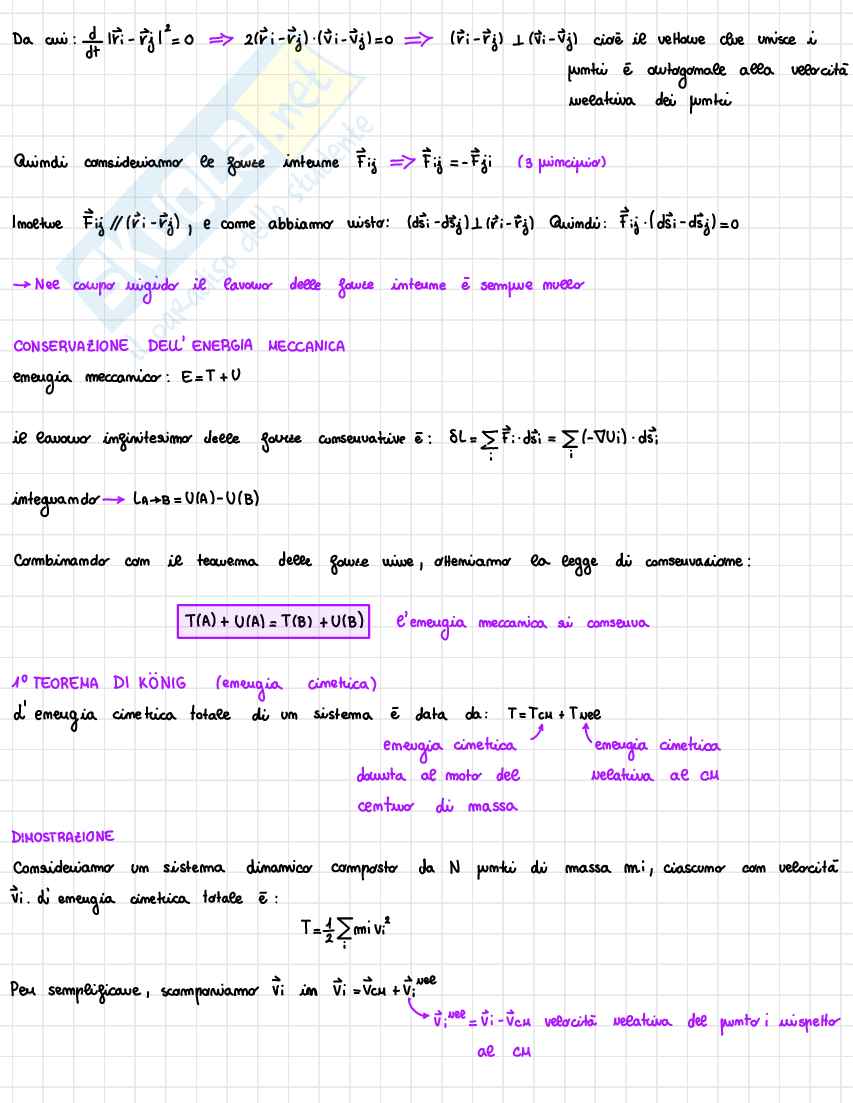 Da cui: d/dt |r⃗i - r⃗j|² = 0 ⇒ 2(r⃗i - r⃗j)·(v⃗i - v⃗j) = 0 ⇒ (r⃗i - r⃗j) ⊥ (v⃗i - v⃗j) cioè il vettore che unisce i
punti è ortogonale alla velocità
relativa dei punti
Quindi consideriamo le forze interne F⃗ij ⇒ F⃗ij = -F⃗ji (3 principio)
Inoltre F⃗ij // (r⃗i - r⃗j), e come abbiamo visto: (ds⃗i - ds⃗j) ⊥ (r⃗i - r⃗j) Quindi: F⃗ij · (ds⃗i - ds⃗j) = 0
→ Nel corpo rigido il lavoro delle forze interne è sempre nullo
CONSERVAZIONE DELL'ENERGIA MECCANICA
energia meccanica: E = T + U
il lavoro infinitesimo delle forze conservative è: δL = ∑i F⃗i · ds⃗i = ∑i (-∇Ui) · ds⃗i
integrando → LA→B = U(A) - U(B)
Combinando con il teorema delle forze vive, otteniamo la legge di conservazione:
T(A) + U(A) = T(B) + U(B) l'energia meccanica si conserva
1° TEOREMA DI KÖNIG (energia cinetica)
L'energia cinetica totale di un sistema è data da: T = TCM + Trel
energia cinetica energia cinetica
dovuta al moto del relativa al CM
centro di massa
DIMOSTRAZIONE
Consideriamo un sistema dinamico composto da N punti di massa mi, ciascuno con velocità
v⃗i. L'energia cinetica totale è:
T = 1/2 ∑i mi vi²
Per semplificare, scomponiamo v⃗i in v⃗i = v⃗CM + v⃗i^rel
v⃗i^rel = v⃗i - v⃗CM velocità relativa del punto i rispetto
al CM
SKUOLA.net
il paradiso dello studente